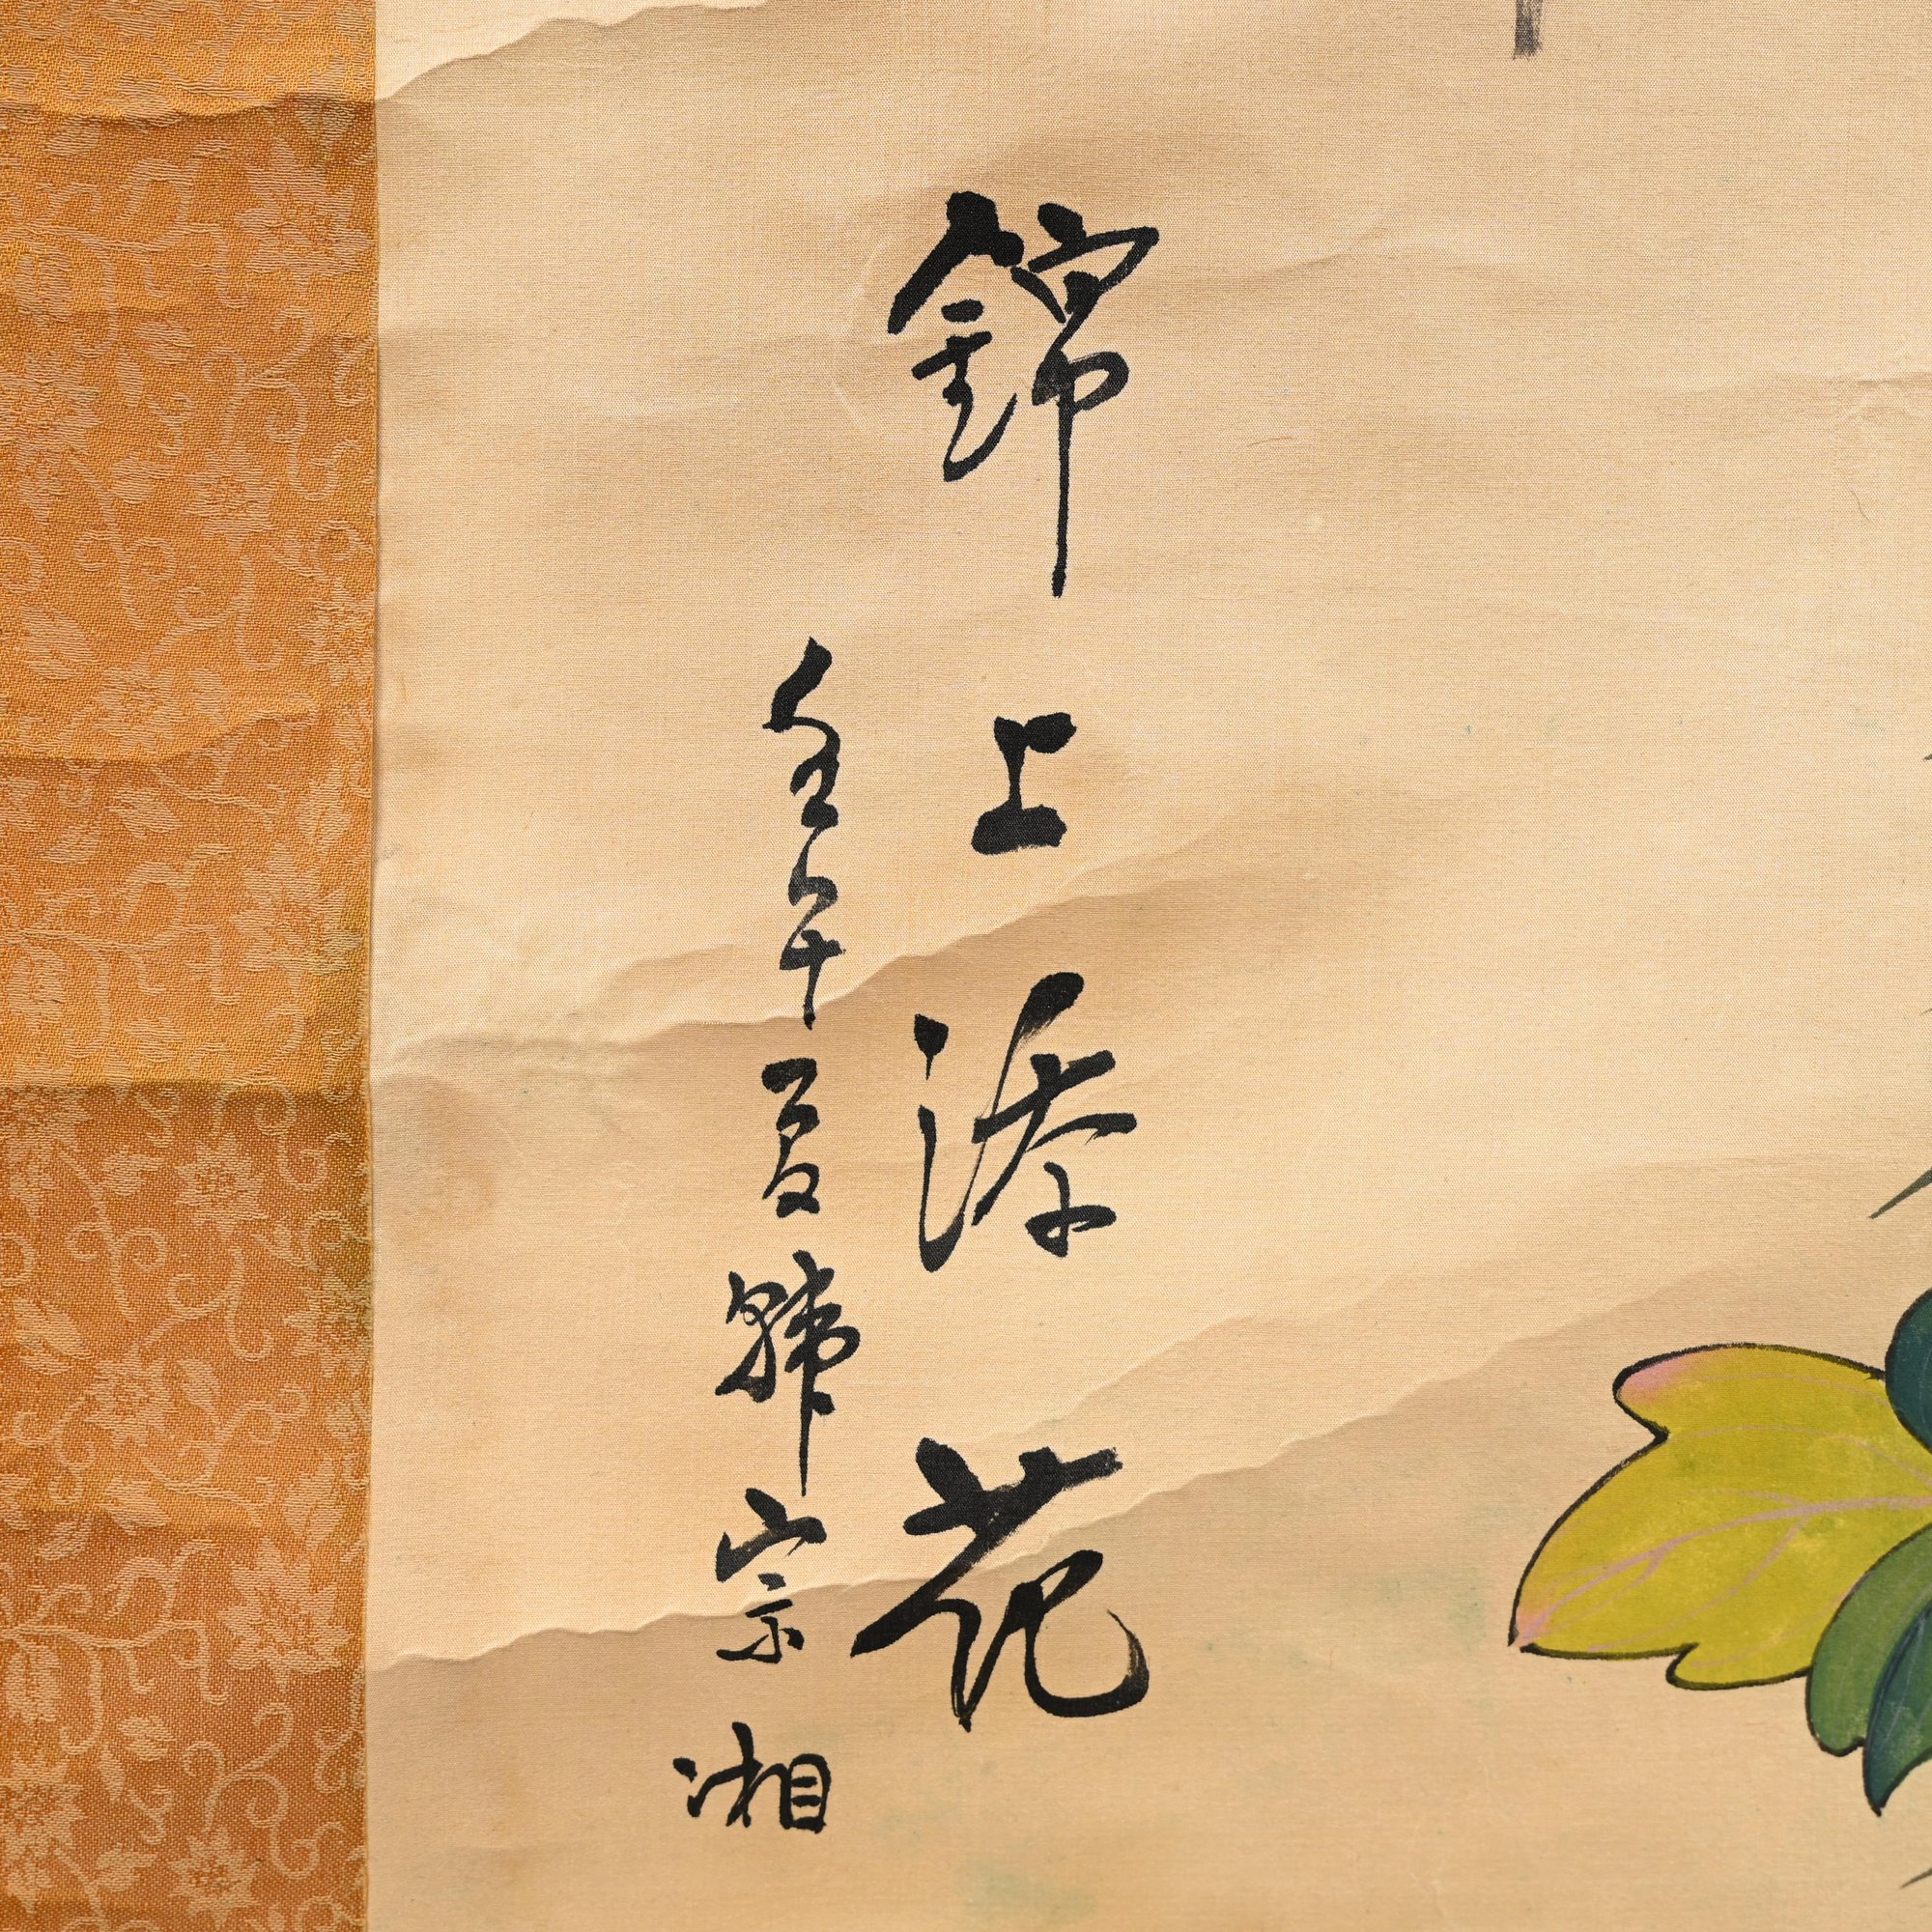 錦上添花
壬午夏韓宗湘